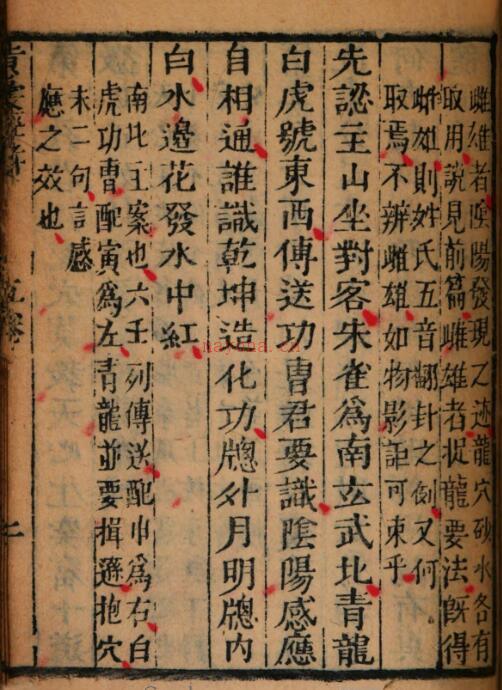 雌雄者陰陽發現之迹龍穴砂水各有
取用說見前篇雌雄者捉龍要法旣得
雌雄則姓氏五音翻卦之例又何
取焉不辨雌雄如物影詎可東乎
先認主山坐對客朱雀爲南玄武北青龍
白虎號東西傳送功曹君要識陰陽感應
自相通誰識乾坤造化功牕外月明牕内
白水邊花發水中紅
南北主案也六壬列傳送配申爲右白
虎功曹配寅爲左青龍並要揖遜抱穴
末二句言感
應之效也
二